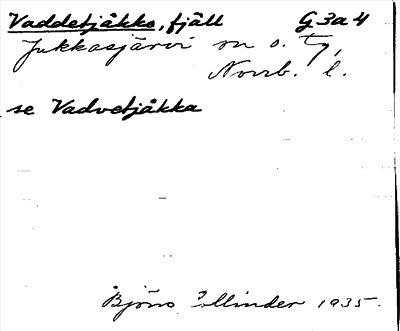 Vaddetjåkko, fjäll G 3a 4
Jukkasjärvi sn o. tg,
Norrb. l.
se Vadvetjåkka
Björn Collinder 1935.